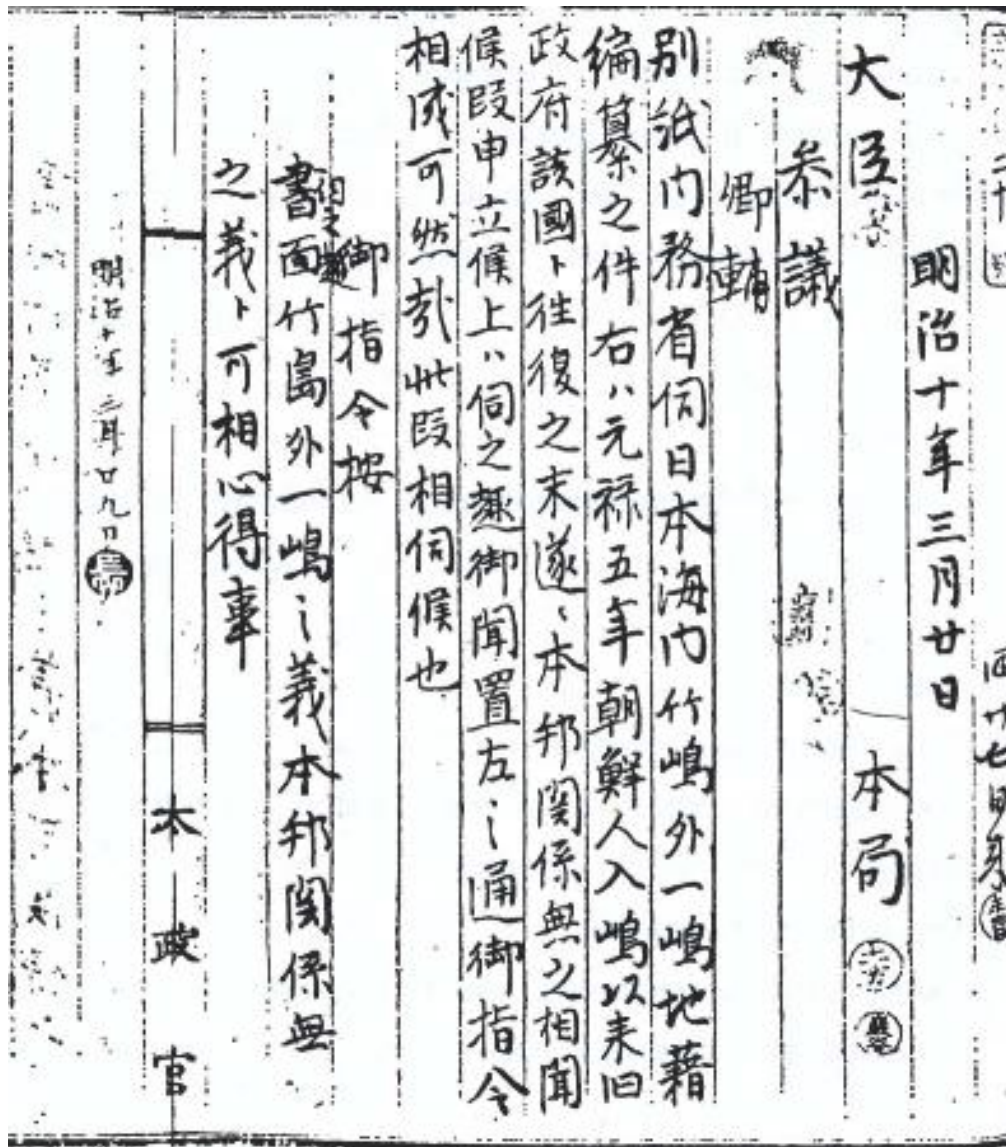 明治十年三月廿日
大臣
本局
参議
卿輔
別紙内務省伺日本海内竹嶋外一嶋地籍
編纂之件右ハ元禄五年朝鮮人入嶋以来旧
政府該國ト往復之末遂ニ本邦関係無之相聞
候段申立候上ハ伺之趣御聞置左ニ通御指令
相成可然哉此段相伺候也
御指令按
伺之趣
書面竹島外一嶋之義本邦関係無
之義ト可相心得事
明治十年三月廿九日
政官